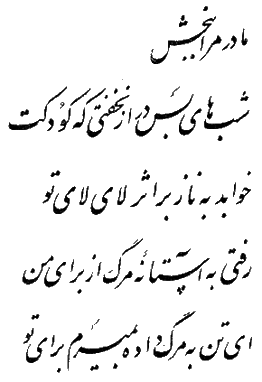 مادر مرا ببخش
شب های بس دراز نخفتی که کودکت
خوابد به ناز بر اثر لای لای تو
رفتی به آستانهٔ مرگ از برای من
ای تن به مرگ داده بمیرم برای تو